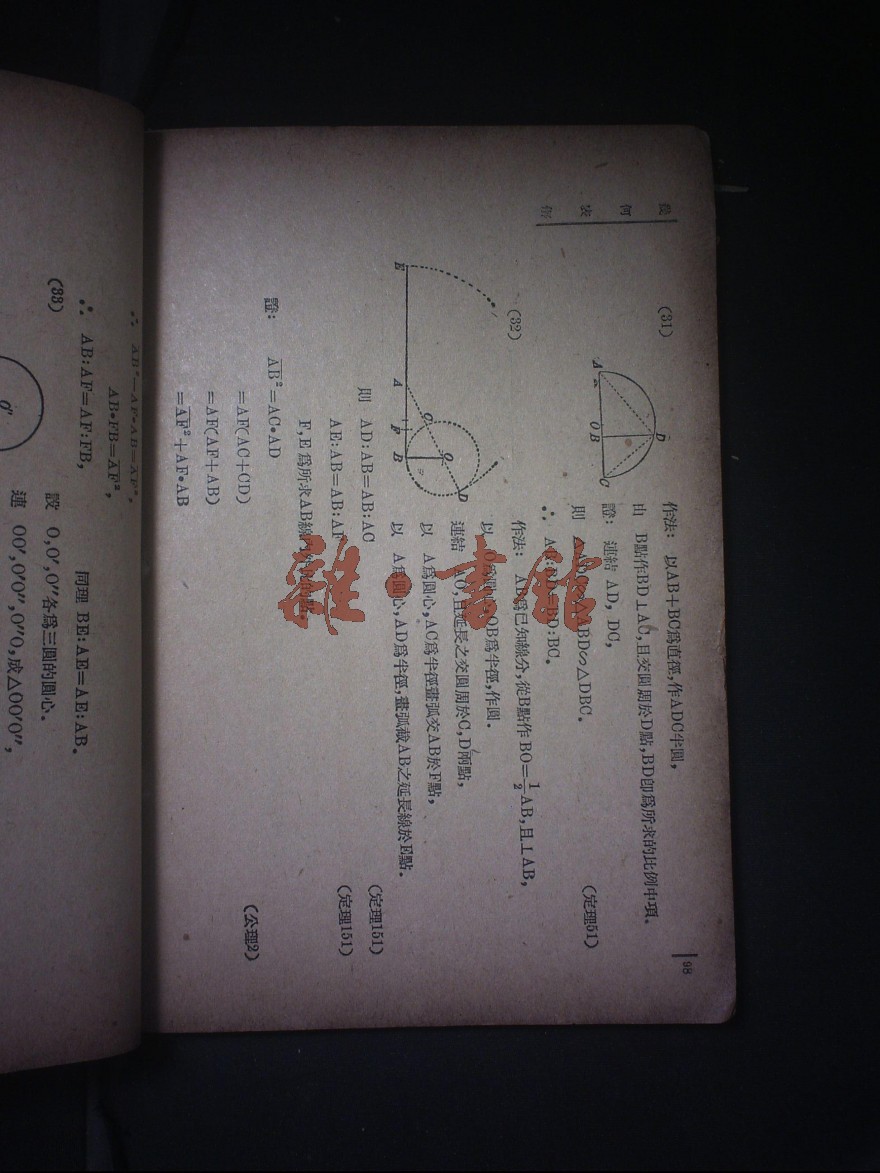 98
幾何表解
(31)
作法： 以AB+BC爲直徑，作ADC半圓，
由 B點作BD⊥AC，且交圓周於D點，BD卽爲所求的比例中項。
證： 連結 AD, DC,
則 ABD∽△DBC. (定理51)
BD:BC.
(32)
作法： 爲已知線分，從B點作BO=1/2AB，且⊥AB，
以 OB爲半徑，作圓。
連結 AO，且延長之交圓周於C, D兩點，
以 A爲圓心，AC爲半徑畫弧交AB於F點，
以 A爲圓心，AD爲半徑，畫弧截AB之延長線於E點。
則 AD:AB=AB:AC (定理151)
AE:AB=AB:AF (定理151)
F,E爲所求AB線
證： AB²=AC•AD
=AF(AC+CD)
=AF(AF+AB) (公理2)
=AF²+AF•AB
∴ AB²−AF•AB=AF²,
AB•FB=AF²,
∴ AB:AF=AF:FB, 同理 BE:AE=AE:AB.
(33)
設 O,O′,O″各爲三圓的圓心。
連 OO′,O′O″,O″O,成△OO′O″,